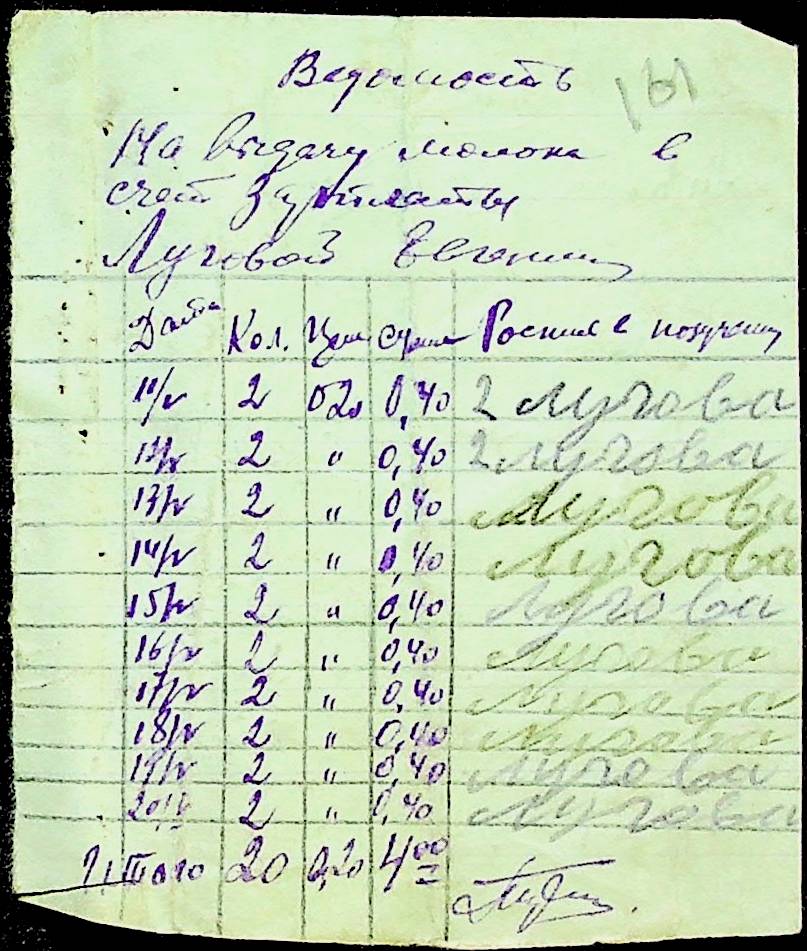 161
Ведомость
На выдачу молока в
счет зарплаты
Луговой Евгении
Дата Кол. Цена Сумма Роспись в получении
11/V 2 0,20 0,40 2 Лугова
12/V 2 " 0,40 2 Лугова
13/V 2 " 0,40 Лугова
14/V 2 " 0,40 Лугова
15/V 2 " 0,40 Лугова
16/V 2 " 0,40 Лугова
17/V 2 " 0,40 Лугова
18/V 2 " 0,40 Лугова
19/V 2 " 0,40 Лугова
20/V 2 " 0,40 Лугова
Итого 20 0,20 4 00